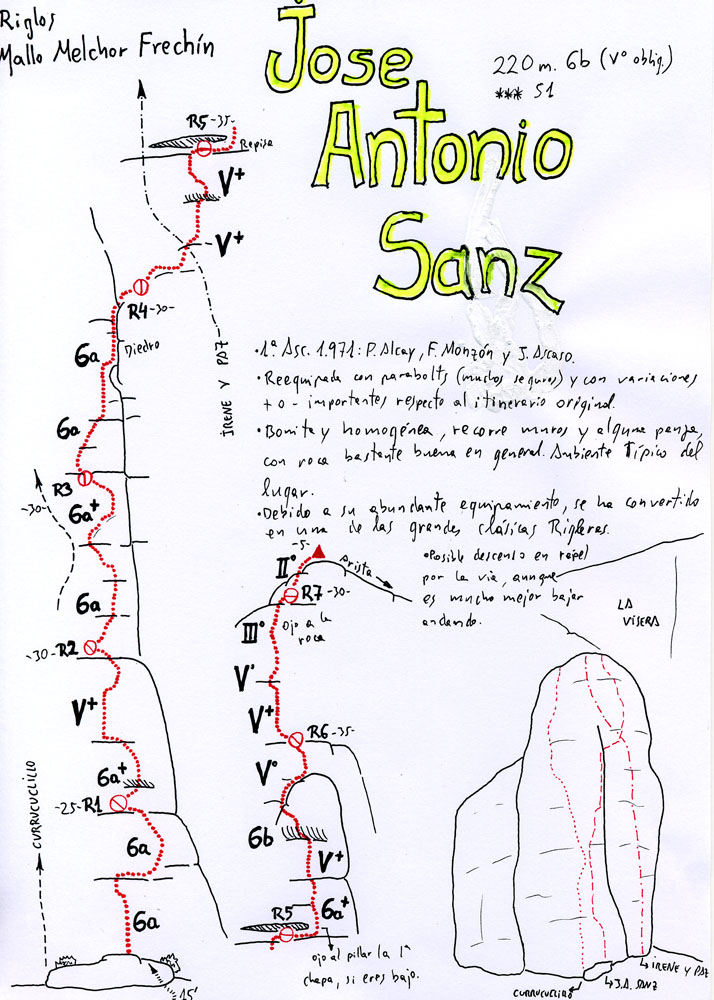 Riglos
Mallo Melchor Frechín
Jose
Antonio
Sanz
220 m. 6b (Vº oblig.)
*** S1
R5 -35-
Repisa
V+
V+
R4 -30-
6a
Diedro
IRENE Y PAZ
6a
R3
-30-
6a+
6a
-30- R2
V+
6a+
-25- R1
CURRUCUCLILLO
6a
6a
15'
•1ª Asc. 1.971: P. Alcay, F. Monzón y J. Ascaso.
•Reequipada con parabolts (muchos seguros) y con variaciones
+ o - importantes respecto al itinerario original.
•Bonita y homogénea, recorre muros y alguna panza,
con roca bastante buena en general. Ambiente Típico del
lugar.
•Debido a su abundante equipamiento, se ha convertido
en una de las grandes clásicas Rigleras.
•Posible descenso en rápel
por la vía, aunque
es mucho mejor bajar
andando.
-5-
IIº
Arista
R7 -30-
Ojo a la
roca
IIIº
Vº
V+
R6 -35-
Vº
6b
V+
R5
6a+
Ojo al pillar la 1ª
chapa, si eres bajo.
LA
VISERA
IRENE Y PAZ
J.A. SANZ